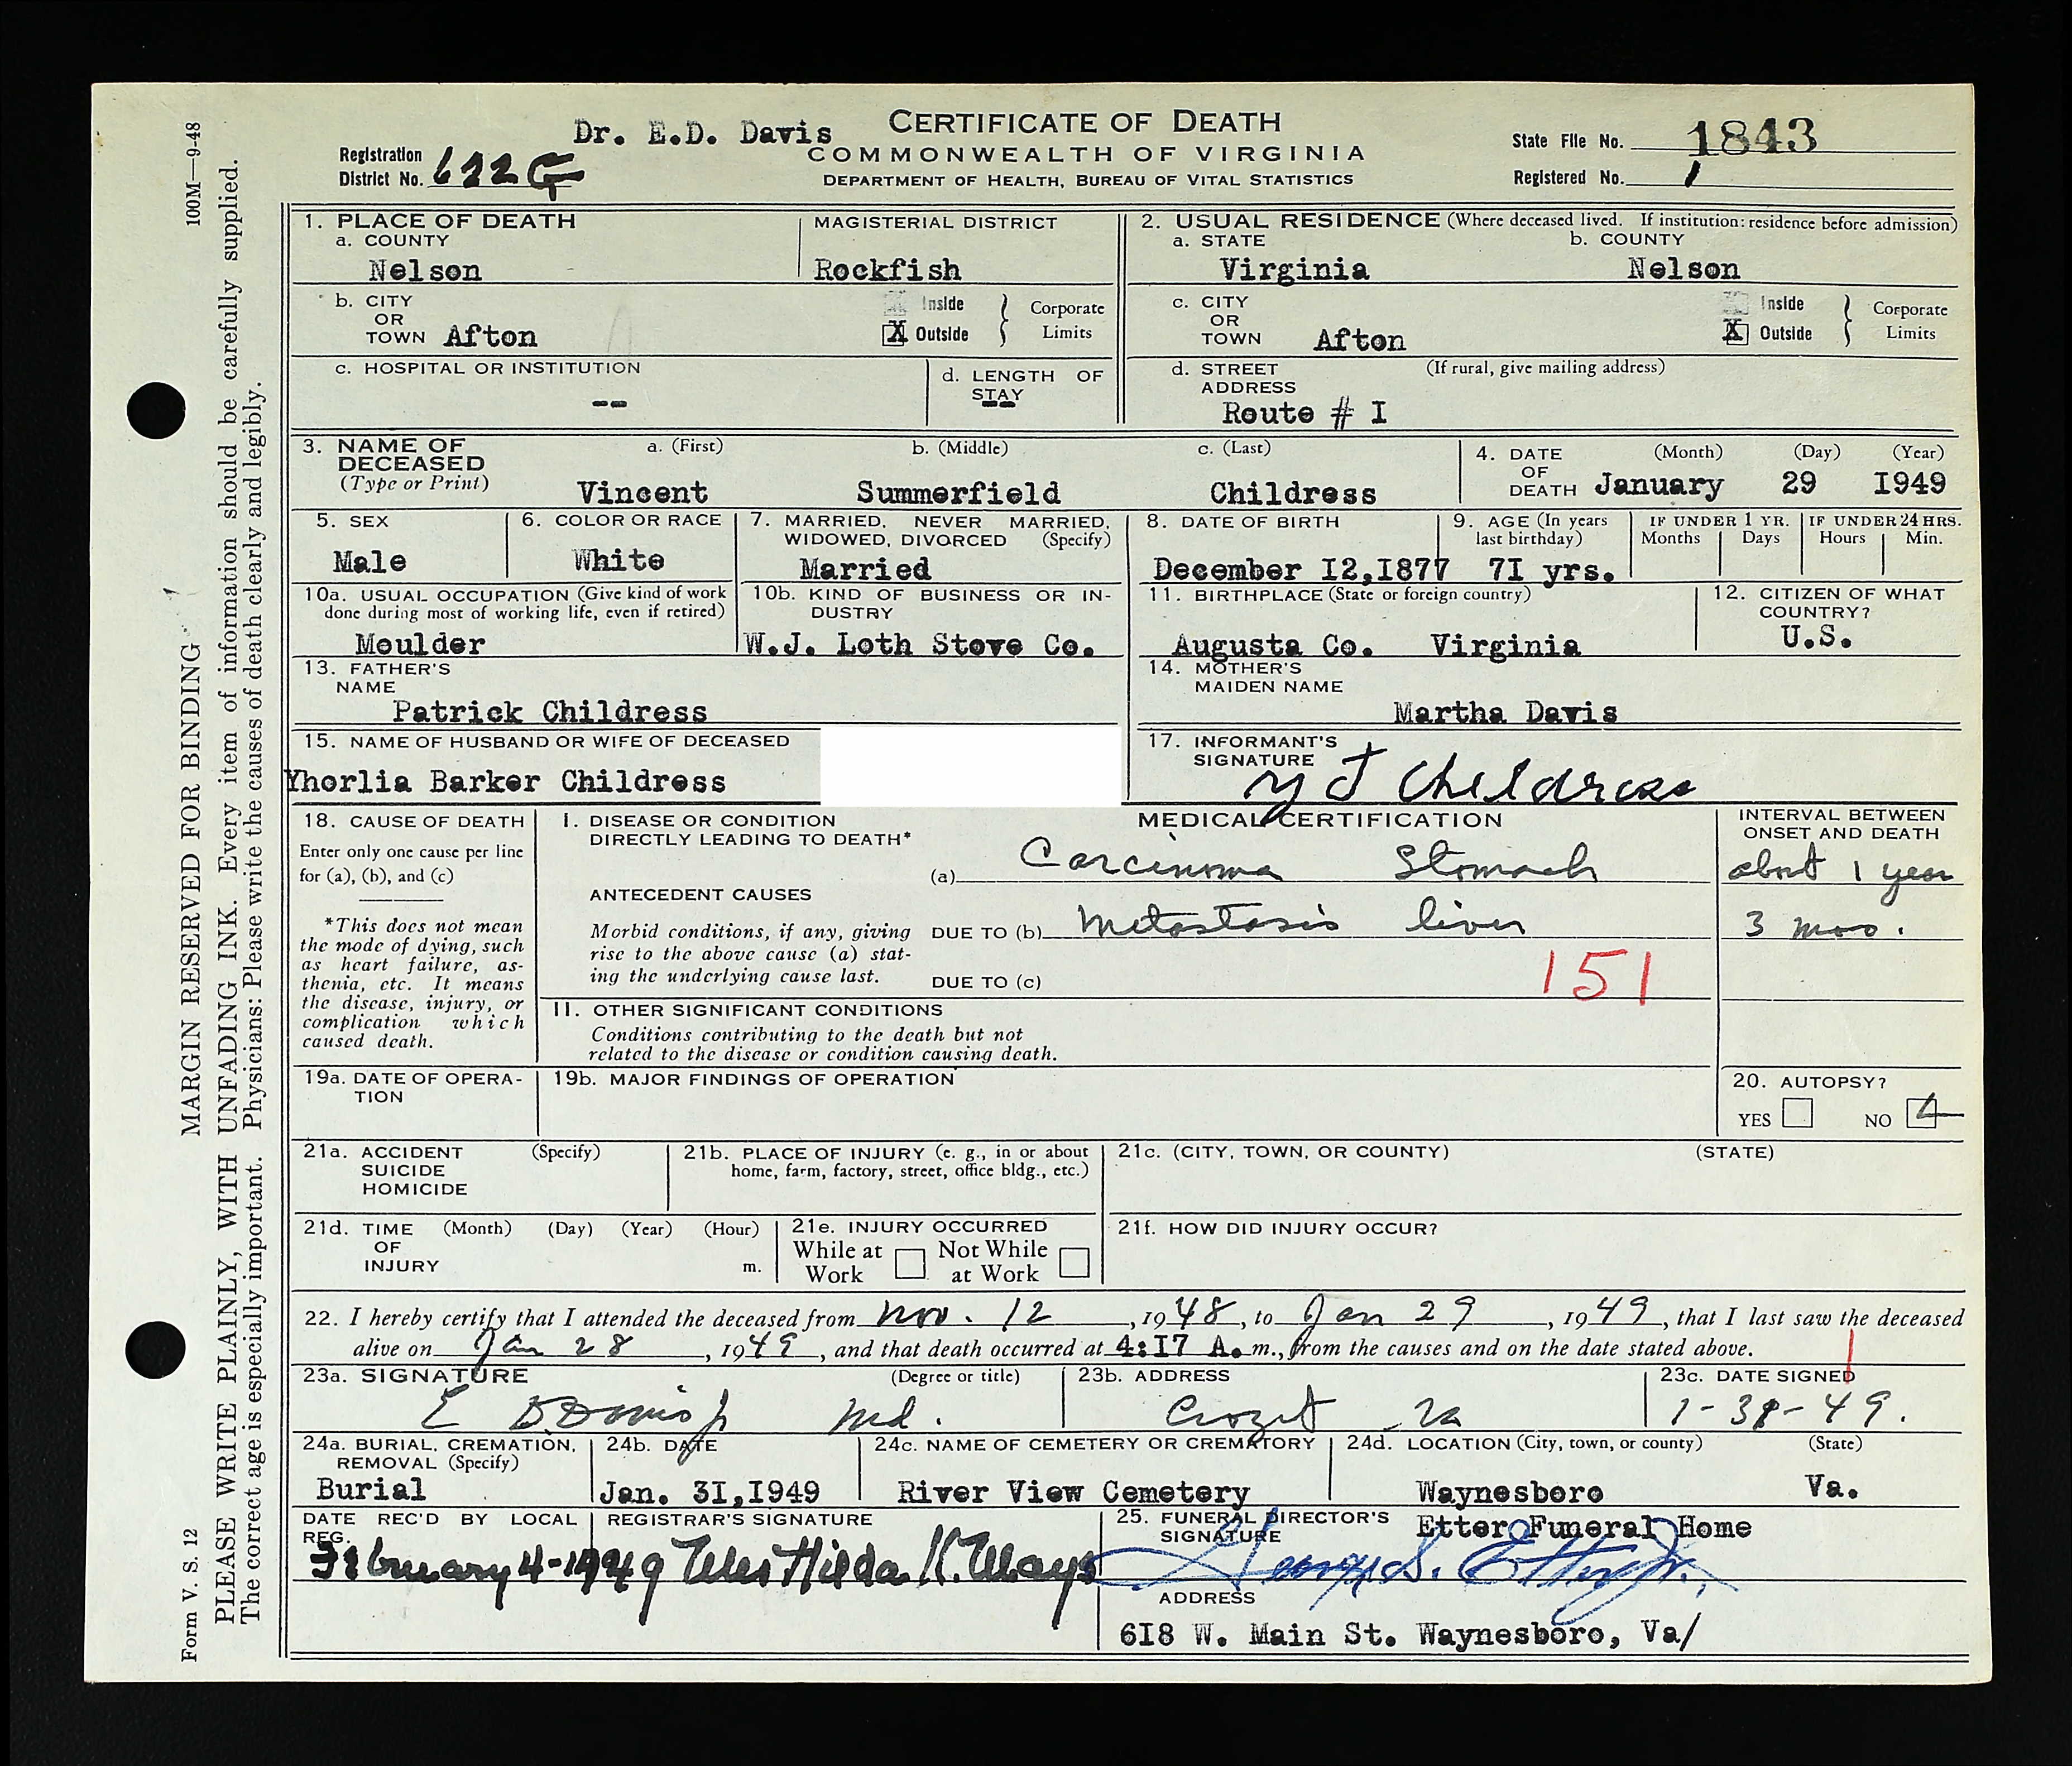 Dr. E.D. Davis
CERTIFICATE OF DEATH
COMMONWEALTH OF VIRGINIA
DEPARTMENT OF HEALTH, BUREAU OF VITAL STATISTICS
Registration District No. 622 G
State File No. 1843
Registered No. 1
100M—9-48
MARGIN RESERVED FOR BINDING
PLEASE WRITE PLAINLY, WITH UNFADING INK. Every item of information should be carefully supplied.
The correct age is especially important. Physicians: Please write the causes of death clearly and legibly.
Form V. S. 12
1. PLACE OF DEATH
a. COUNTY
Nelson
MAGISTERIAL DISTRICT
Rockfish
2. USUAL RESIDENCE (Where deceased lived. If institution: residence before admission)
a. STATE
Virginia
b. COUNTY
Nelson
b. CITY OR TOWN Afton
Inside
X Outside
Corporate Limits
c. CITY OR TOWN Afton
Inside
X Outside
Corporate Limits
c. HOSPITAL OR INSTITUTION
--
d. LENGTH OF STAY
--
d. STREET ADDRESS (If rural, give mailing address)
Route # I
3. NAME OF DECEASED (Type or Print)
a. (First) b. (Middle) c. (Last)
Vincent Summerfield Childress
4. DATE OF DEATH (Month) (Day) (Year)
January 29 I949
5. SEX
Male
6. COLOR OR RACE
White
7. MARRIED, NEVER MARRIED, WIDOWED, DIVORCED (Specify)
Married
8. DATE OF BIRTH
December I2,I877
9. AGE (In years last birthday)
7I yrs.
IF UNDER 1 YR. Months Days
IF UNDER 24 HRS. Hours Min.
10a. USUAL OCCUPATION (Give kind of work done during most of working life, even if retired)
Moulder
10b. KIND OF BUSINESS OR INDUSTRY
W.J. Loth Stove Co.
11. BIRTHPLACE (State or foreign country)
Augusta Co. Virginia
12. CITIZEN OF WHAT COUNTRY?
U.S.
13. FATHER'S NAME
Patrick Childress
14. MOTHER'S MAIDEN NAME
Martha Davis
15. NAME OF HUSBAND OR WIFE OF DECEASED
Yhorlia Barker Childress
17. INFORMANT'S SIGNATURE
Y J Childress
18. CAUSE OF DEATH
Enter only one cause per line for (a), (b), and (c)
*This does not mean the mode of dying, such as heart failure, asthenia, etc. It means the disease, injury, or complication which caused death.
MEDICAL CERTIFICATION
I. DISEASE OR CONDITION DIRECTLY LEADING TO DEATH*
(a) Carcinoma Stomach
ANTECEDENT CAUSES
Morbid conditions, if any, giving rise to the above cause (a) stating the underlying cause last.
DUE TO (b) Metastasis liver
DUE TO (c)
151
INTERVAL BETWEEN ONSET AND DEATH
about 1 year
3 mos.
II. OTHER SIGNIFICANT CONDITIONS
Conditions contributing to the death but not related to the disease or condition causing death.
19a. DATE OF OPERATION
19b. MAJOR FINDINGS OF OPERATION
20. AUTOPSY?
YES NO
21a. ACCIDENT SUICIDE HOMICIDE (Specify)
21b. PLACE OF INJURY (e. g., in or about home, farm, factory, street, office bldg., etc.)
21c. (CITY, TOWN, OR COUNTY) (STATE)
21d. TIME OF INJURY (Month) (Day) (Year) (Hour) m.
21e. INJURY OCCURRED
While at Work Not While at Work
21f. HOW DID INJURY OCCUR?
22. I hereby certify that I attended the deceased from Nov. 12, 1948, to Jan 29, 1949, that I last saw the deceased
alive on Jan 28, 1949, and that death occurred at 4:I7 A. m., from the causes and on the date stated above.
23a. SIGNATURE (Degree or title)
E D Davis Jr Md.
23b. ADDRESS
Crozet Va
23c. DATE SIGNED
1-31-49.
24a. BURIAL, CREMATION, REMOVAL (Specify)
Burial
24b. DATE
Jan. 3I,I949
24c. NAME OF CEMETERY OR CREMATORY
River View Cemetery
24d. LOCATION (City, town, or county) (State)
Waynesboro Va.
DATE REC'D BY LOCAL REG.
February 4-1949
REGISTRAR'S SIGNATURE
Mrs Hilda K. Mays
25. FUNERAL DIRECTOR'S SIGNATURE
Etter Funeral Home
George S. Etter Jr.
ADDRESS
6I8 W. Main St. Waynesboro, Va/